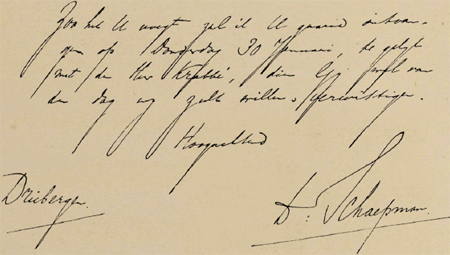 Zoo het U voegt zal ik U gaarne ontvan-
gen op Donderdag 30 Januari, te gelijk
met den Heer Krabbé, dien Gij wel van
den dag zult willen verwittigen.
Hoogachtend
Driebergen. Dr. Schaepman.